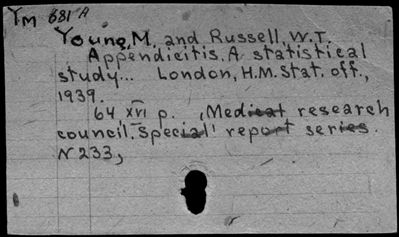 Ym 681 A
Young, M. and Russell, W.T.
Appendicitis. A statistical
study... London, H.M. Stat. off.,
1939.
64 XVI p. (Medical research
council. Special report series.
N 233)